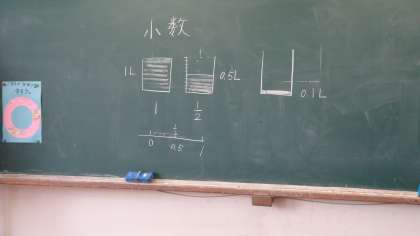 小数
1L
0.5L
0.1L
1
1/2
1/2
0 0.5 1